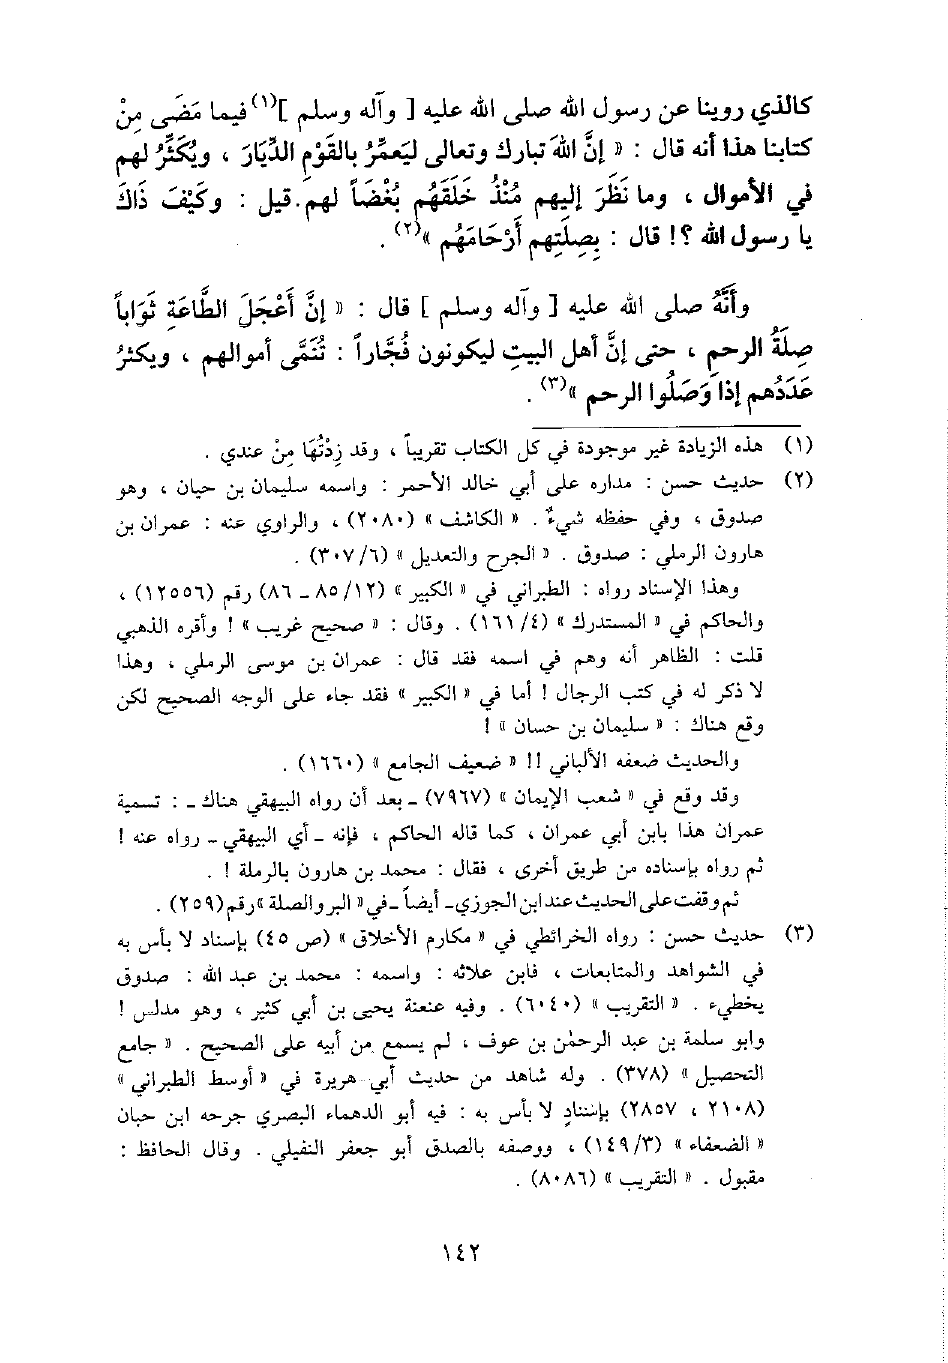 كالذي روينا عن رسول الله صلى الله عليه [ وآله وسلم ]<sup>(١)</sup> فيما مَضَى مِنْ
كتابنا هذا أنه قال : « إنَّ اللهَ تبارك وتعالى ليَعمِّرُ بالقَوْمِ الدِّيَارَ ، ويُكَثِّرُ لهم
في الأموال ، وما نَظَرَ إليهم مُنْذُ خَلَقَهُم بُغْضَاً لهم. قيل : وكَيْفَ ذَاكَ
يا رسول الله ؟! قال : بِصِلَتِهم أَرْحَامَهُم »<sup>(٢)</sup> .
وأنَّهُ صلى الله عليه [ وآله وسلم ] قال : « إنَّ أَعْجَلَ الطَّاعَةِ ثَوَاباً
صِلَةُ الرحمِ ، حتى إنَّ أهل البيتِ ليكونون فُجَّاراً : تُنَمَّى أموالهم ، ويكثرُ
عَدَدُهم إذا وَصَلُوا الرحم »<sup>(٣)</sup> .
(١) هذه الزيادة غير موجودة في كل الكتاب تقريباً ، وقد زِدْتُهَا مِنْ عندي .
(٢) حديث حسن : مداره على أبي خالد الأحمر : واسمه سليمان بن حيان ، وهو
صدوق ، وفي حفظه شيءٌ . « الكاشف » (٢٠٨٠) ، والراوي عنه : عمران بن
هارون الرملي : صدوق . « الجرح والتعديل » (٣٠٧/٦) .
وهذا الإسناد رواه : الطبراني في « الكبير » (١٢/ ٨٥ ـ ٨٦) رقم (١٢٥٥٦) ،
والحاكم في « المستدرك » (١٦١/٤) . وقال : « صحيح غريب » ! وأقره الذهبي
قلت : الظاهر أنه وهم في اسمه فقد قال : عمران بن موسى الرملي ، وهذا
لا ذكر له في كتب الرجال ! أما في « الكبير » فقد جاء على الوجه الصحيح لكن
وقع هناك : « سليمان بن حسان » !
والحديث ضعفه الألباني !! « ضعيف الجامع » (١٦٦٠) .
وقد وقع في « شعب الإيمان » (٧٩٦٧) ـ بعد أن رواه البيهقي هناك ـ : تسمية
عمران هذا بابن أبي عمران ، كما قاله الحاكم ، فإنه ـ أي البيهقي ـ رواه عنه !
ثم رواه بإسناده من طريق أخرى ، فقال : محمد بن هارون بالرملة ! .
ثم وقفت على الحديث عند ابن الجوزي ـ أيضاً ـ في « البر والصلة » رقم (٢٥٩) .
(٣) حديث حسن : رواه الخرائطي في « مكارم الأخلاق » (ص ٤٥) بإسناد لا بأس به
في الشواهد والمتابعات ، فابن علاثه : واسمه : محمد بن عبد الله : صدوق
يخطيء . « التقريب » (٦٠٤٠) . وفيه عنعنة يحيى بن أبي كثير ، وهو مدلس !
وابو سلمة بن عبد الرحمٰن بن عوف ، لم يسمع من أبيه على الصحيح . « جامع
التحصيل » (٣٧٨) . وله شاهد من حديث أبي هريرة في « أوسط الطبراني »
(٢١٠٨ ، ٢٨٥٧) بإسنادٍ لا بأس به : فيه أبو الدهماء البصري جرحه ابن حبان
« الضعفاء » (١٤٩/٣) ، ووصفه بالصدق أبو جعفر النفيلي . وقال الحافظ :
مقبول . « التقريب » (٨٠٨٦) .
١٤٢